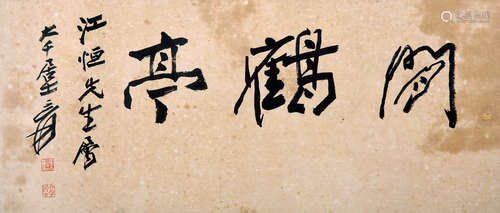 閒鶴亭
江恒先生屬
大千居士爰